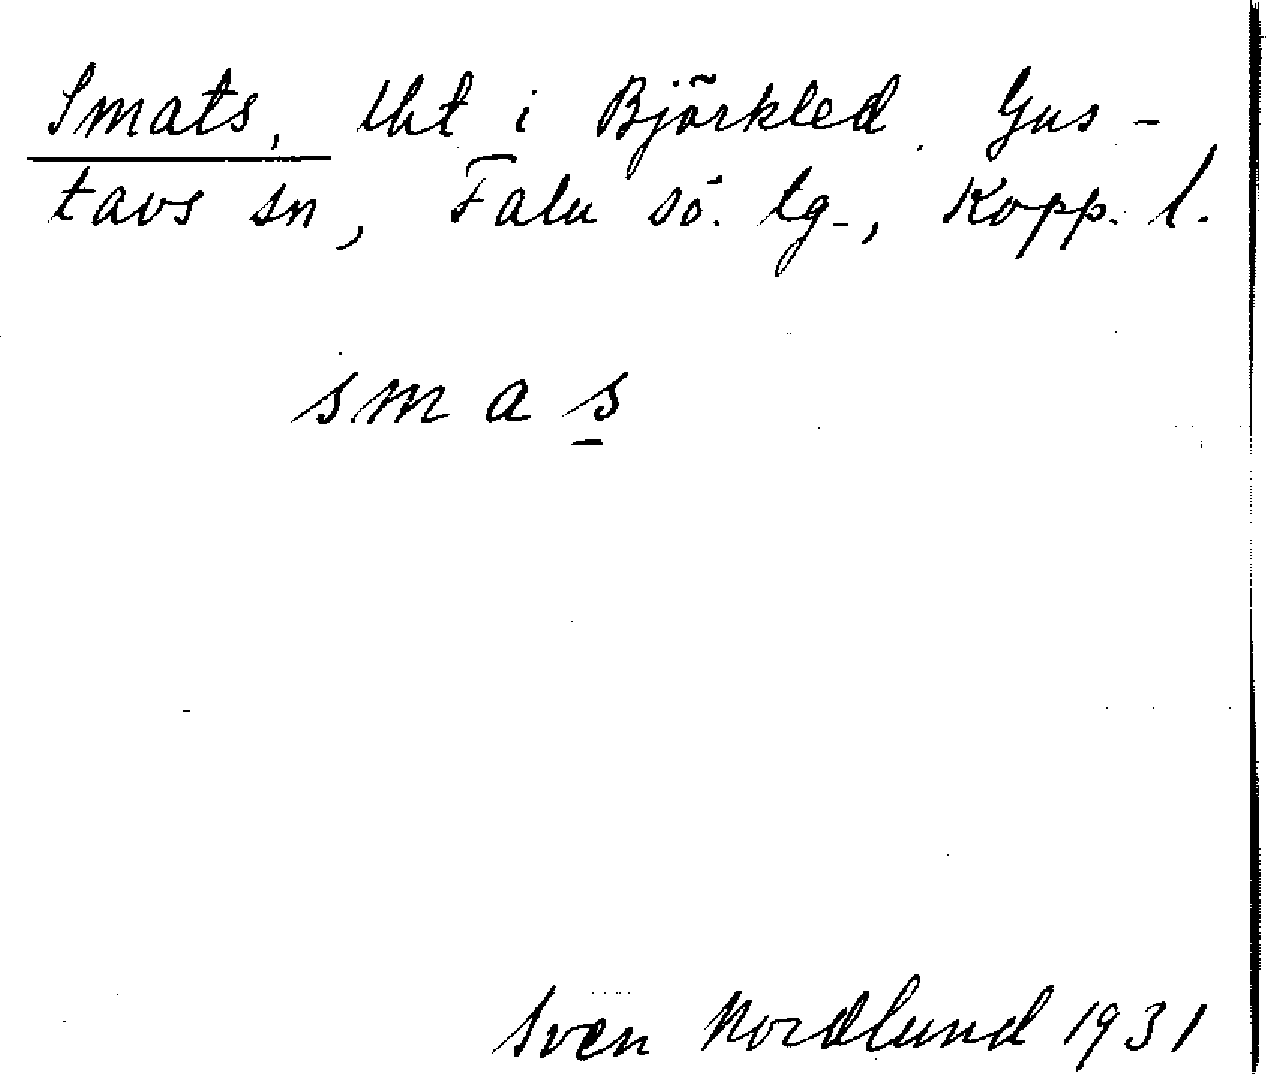 Smats, tht i Björkled. Gus-
tavs sn, Falu sö. tg., Kopp. l.
smas
Sven Nordlund 1931